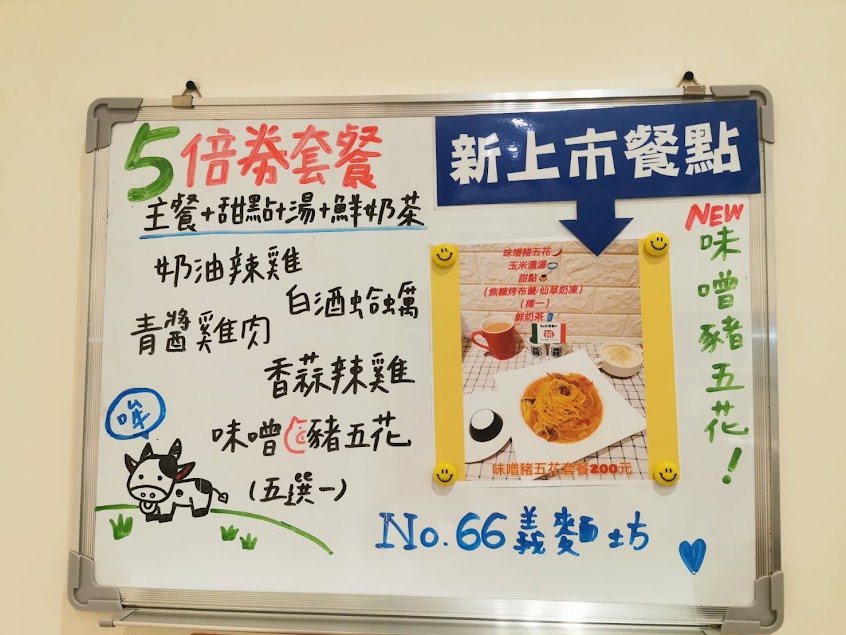 5倍券套餐
主餐+甜點+湯+鮮奶茶
奶油辣雞
白酒蛤蠣
青醬雞肉
香蒜辣雞
味噌豬五花
(五選一)
哞
新上市餐點
NEW
味噌豬五花!
味噌豬五花
玉米濃湯
甜點
(焦糖烤布蕾/仙草奶凍)
(擇一)
鮮奶茶
味噌豬五花套餐200元
No.66義麵坊